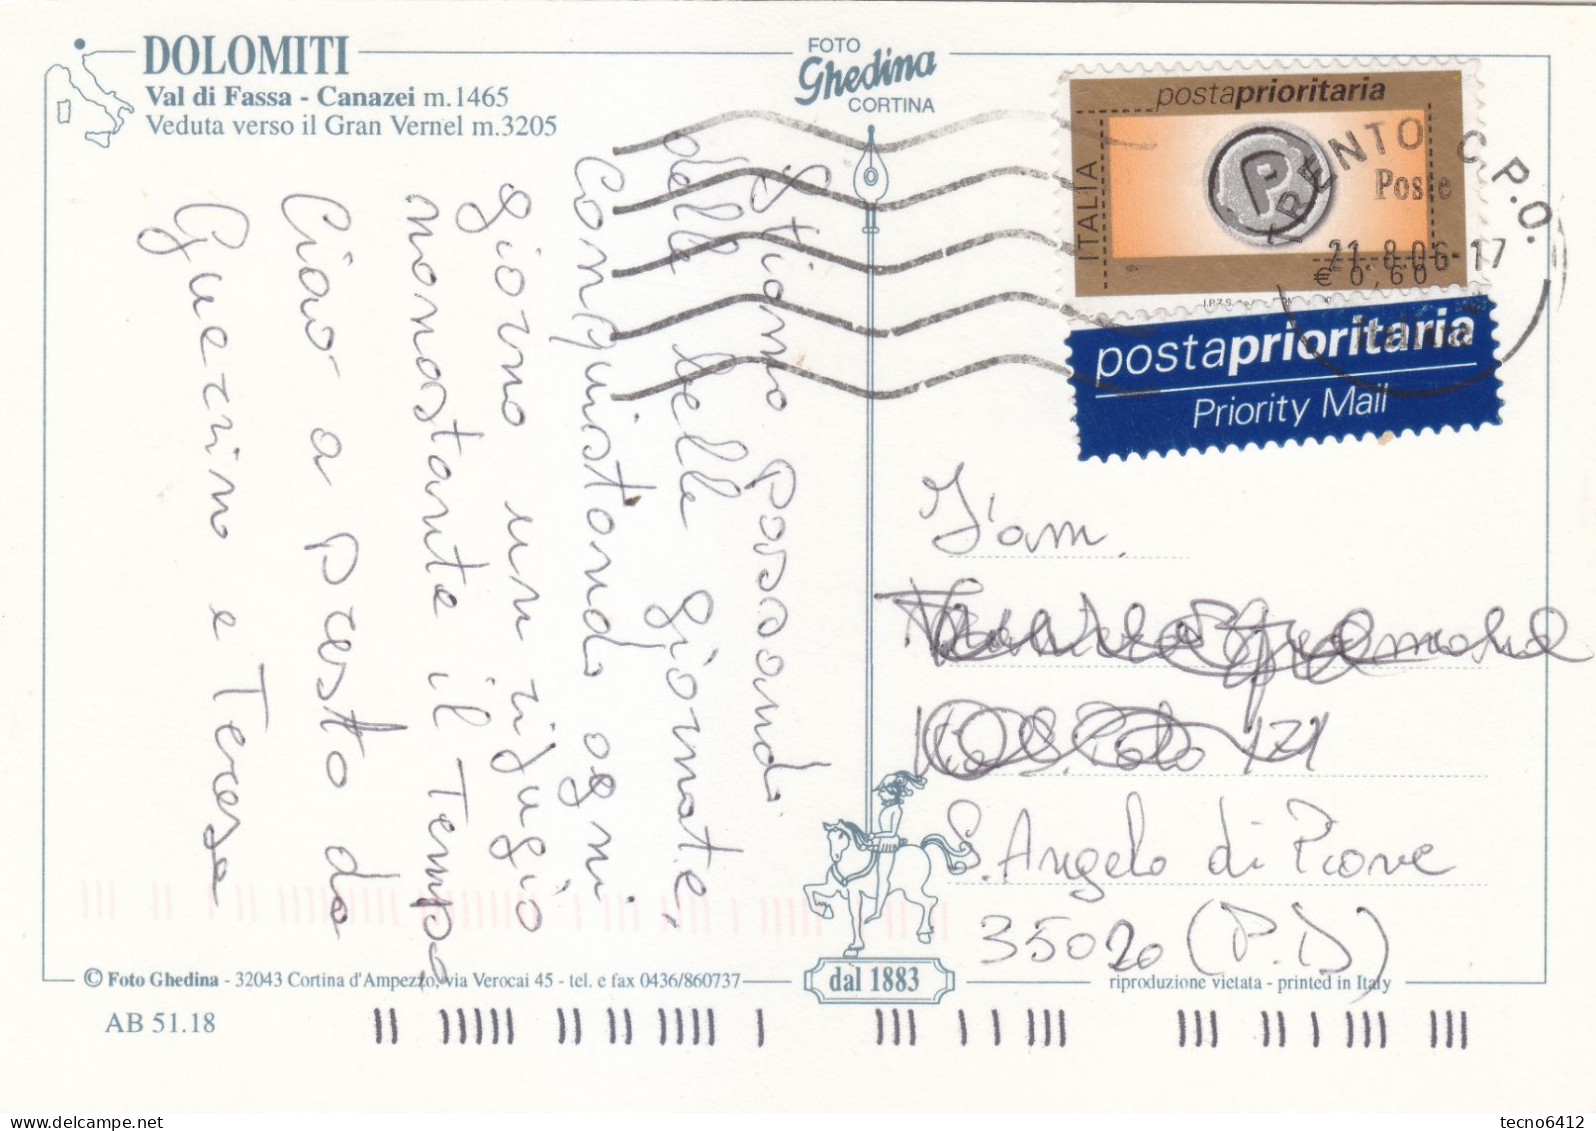 DOLOMITI
Val di Fassa - Canazei m.1465
Veduta verso il Gran Vernel m.3205
FOTO
Ghedina
CORTINA
postaprioritaria
ITALIA
P
TRENTO C.P.O.
Poste
21.8.06-17
€ 0,60
postaprioritaria
Priority Mail
Stiamo passando
delle belle giornate,
conquistando ogni
giorno un rifugio
nonostante il tempo
Ciao a presto da
Guerrino e Teresa
Fam.
171
S. Angelo di Piove
35020 (P.D)
© Foto Ghedina - 32043 Cortina d'Ampezzo, via Verocai 45 - tel. e fax 0436/860737
dal 1883
riproduzione vietata - printed in Italy
AB 51.18
tecno6412